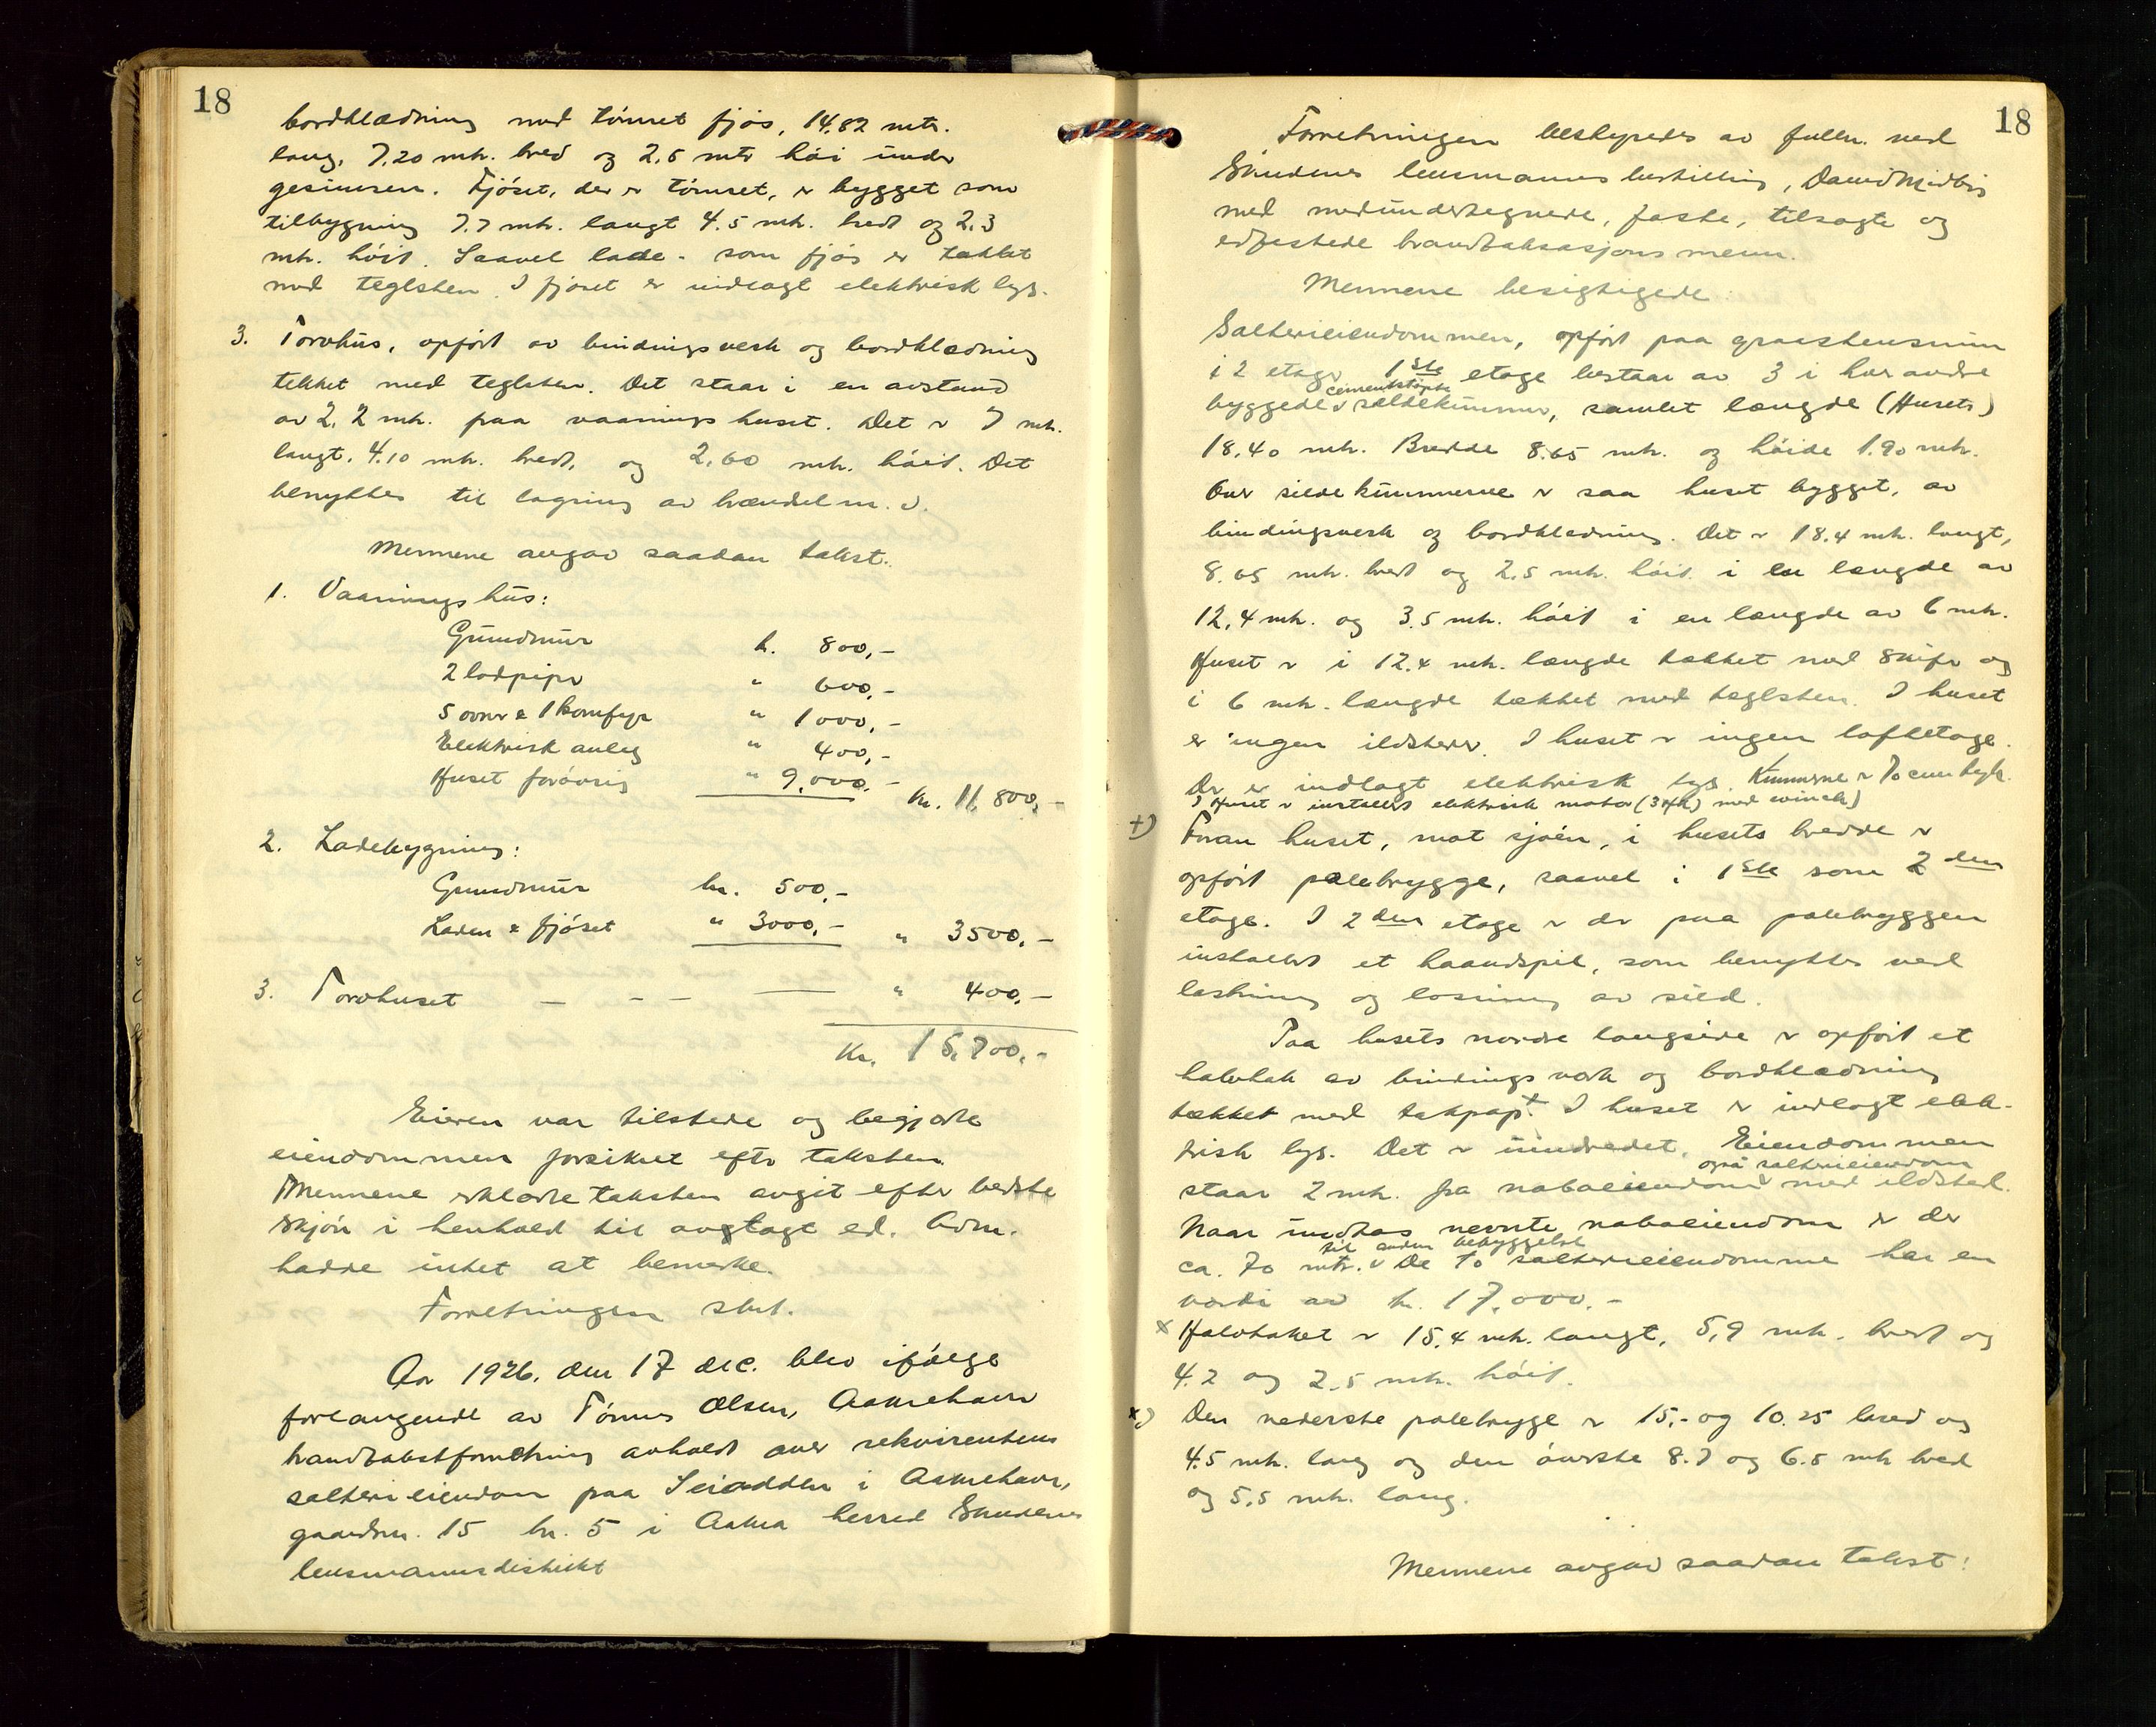 18
bordklædning med tømret fjøs, 14.82 mtr.
lang, 7.20 mtr. bred og 2,5 mtr høi under
gesimsen. Fjøset, der er tømret, er bygget som
tilbygning 7.7 mtr. langt 4.5 mtr. bredt og 2.3
mtr. høit. Saavel lade- som fjøs er tækket
med teglsten. I fjøset er indlagt elektrisk lys.
3. Torvhus, opført av bindingsverk og bordklædning
tekket med teglsten. Det staar i en avstand
av 2,2 mtr. fra vaaningshuset. Det er 7 mtr.
langt. 4.10 mtr. bredt, og 2,60 mtr. høit. Det
benyttes til lagring av brændsel m. v.
Mennene avgav saadan takst:
1. Vaaningshus:
Grundmur kr. 800,-
2 lodpiper " 600,-
5 ovner & 1 komfyr " 1000,-
Elektrisk anleg " 400,-
Huset forøvrig " 9,000,- kr. 11,800,-
2. Ladebygning:
Grundmur kr. 500,-
Laden & fjøset " 3000,- " 3500,-
3. Torvhuset — - - — " 400,-
Kr. 15,700,-
Eieren var tilstede og begjærte
eiendommen forsikret efter taksten.
Mennene erklærte taksten avgit efter bedste
skjøn i henhold til avlagt ed. Adm.
hadde intet at bemerke.
Forretningen slut.
Aar 1926. den 17 dec. blev ifølge
forlangende av Tønnes Olsen, Aakrehavn
brandtakstforretning avholdt over rekvirentens
salterieiendom paa i Aakrehavn,
gaardsnr. 15 br. 5 i Aakra herred Skudenes
lensmannsdistrikt
18
Forretningen bestyredes av fullm. ved
Skudenes lensmannsbestilling, David Midbøe
med medundertegnede, faste, tilsagte og
edfæstede brandtaksasjonsmenn.
Mennene besigtigede:
Salterieiendommen, opført paa graastensmur
i 2 etager 1ste etage bestaar av 3 i hverandre
cementstøpte
byggede v sildekummer, samlet længde (Husets)
18.40 mtr. Bredde 8.65 mtr. og høide 1.90 mtr.
Over sildekummerne er saa huset bygget, av
bindingsverk og bordklædning. Det er 18.4 mtr. langt,
8.65 mtr. bredt og 2.5 mtr. høit i en længde av
12.4 mtr. og 3.5 mtr. høit i en længde av 6 mtr.
Huset er i 12.4 mtr. længde tækket med skifer og
i 6 mtr. længde tækket med teglsten. I huset
er ingen ildsteder. I huset er ingen loftetage.
Der er indlagt elektrisk lys. Kummerne er 70 cm tykke.
I Huset er installert elektrisk motor (3 Hk) med winch)
+) Foran huset, mot sjøen, i husets bredde er
opført pælebrygge, saavel i 1ste som 2den
etage. I 2den etage er der paa pælebryggen
installert et haandspil, som benyttes ved
lastning og losning av sild.
Paa husets nordre langside er opført et
halvtak av bindingsverk og bordklædning
tækket med takpap. + I huset er indlagt elek-
trisk lys. Det er uindredet. Eiendommen
også salterieiendom
staar 2 mtr. fra naboeiendom v med ildsted.
Naar undtas nevnte naboeiendom er der
til anden bebyggelse
ca. 70 mtr. v De to salterieiendomme har en
værdi av kr. 17,000.-
x Halvtaket er 15.4 mtr. langt, 5,9 mtr. bredt og
4.2 og 2.5 mtr. høit.
x) Den nederste pælebrygge er 15,- og 10.25 bred og
4.5 mtr. lang og den øverste 8.7 og 6.5 mtr bred
og 5.5 mtr. lang.
Mennene avgav saadan takst: